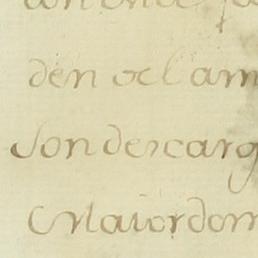 den oclam
son descarg
Maiordom